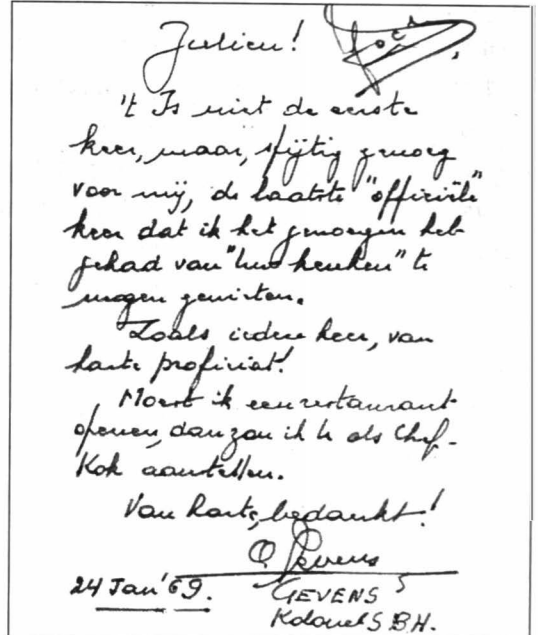 Julien!
't Is niet de eerste
keer, maar, spijtig genoeg
voor mij, de laatste "officiële"
keer dat ik het genoegen heb
gehad van "uw keuken" te
mogen genieten.
Zoals iedere keer, van
harte proficiat!
Moest ik een restaurant
openen, dan zou ik U als Chef-
Kok aanstellen.
Van harte, bedankt!
24 Jan '69.
GEVENS
Kolonel SBH.